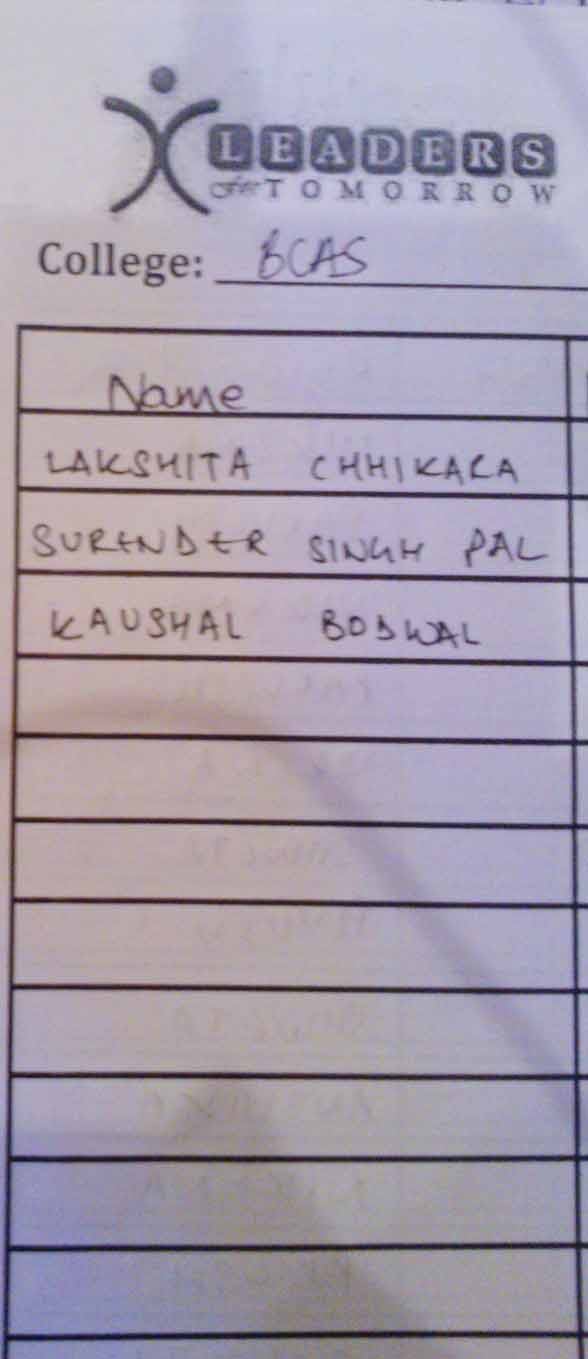 LEADERS
for TOMORROW
College: BCAS
Name
LAKSHITA CHHIKARA
SURENDER SINGH PAL
KAUSHAL BODWAL